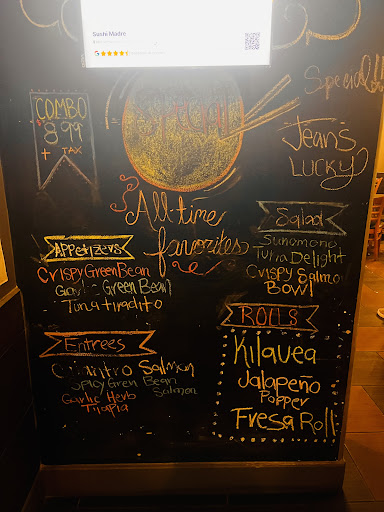 Sushi Madre
Special!!
COMBO
8.99
+ TAX
Jean's
LUCKY
All time
favorites
APPetizers
Crispy Green Bean
Garlic Green Bean
Tuna tiradito
Entrees
Cilantro Salmon
Spicy Green Bean
Salmon
Garlic Herb
Tilapia
Salad
Sunomono
Tuna Delight
Crispy Salmo
Bowl
ROLLS
Kilavea
Jalapeño
Popper
Fresa Roll